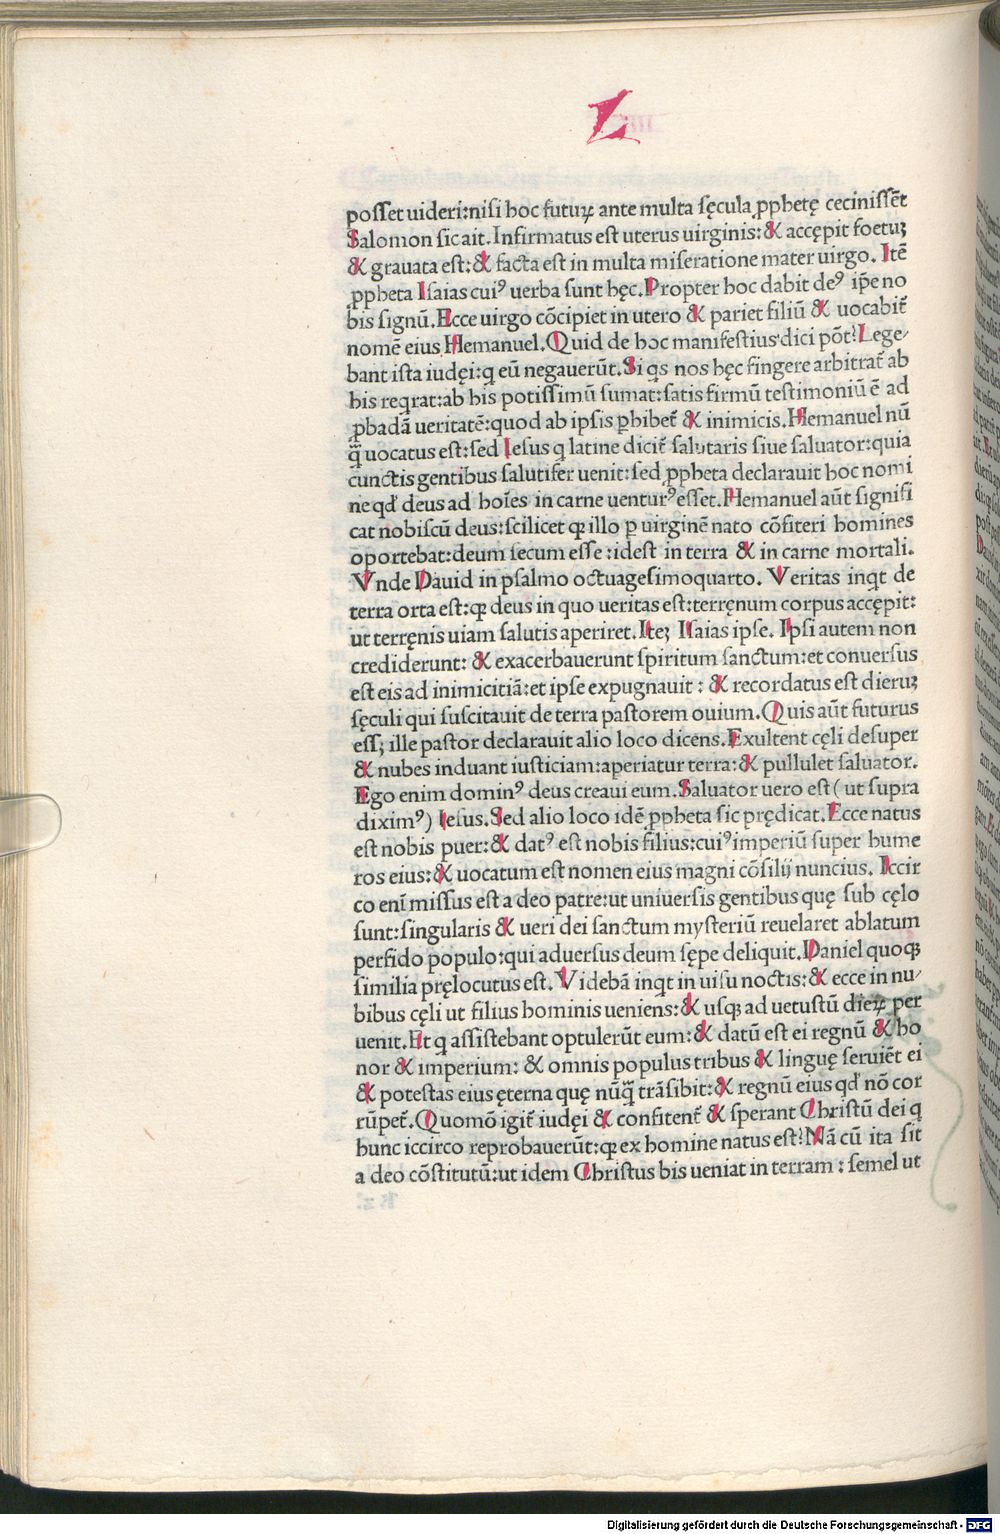 L
posset uideri:nisi hoc futuꝝ ante multa sęcula ꝓphetę cecinissēt
Salomon sic ait. Infirmatus est uterus uirginis: & accępit foetuȝ
& grauata est: & facta est in multa miseratione mater uirgo. Itē
ꝓpheta Isaias cuiꝰ uerba sunt hęc. Propter hoc dabit deꝰ ip̄e no
bis signū. Ecce uirgo cōcipiet in utero & pariet filiū & uocabit̄
nomē eius Hemanuel. Quid de hoc manifestius dici pōt? Lege-
bant ista iudęi: q eū negauerūt. Si qs nos hęc fingere arbitrat̄ ab
his reqrat: ab his potissimū sumat: satis firmū testimoniū ē ad
ꝓbadā ueritatē: quod ab ipsis ꝑhibet̄ & inimicis. Hemanuel nū
q̄ uocatus est: sed Iesus q latine dicit̄ salutaris siue saluator: quia
cunctis gentibus salutifer uenit: sed ꝓpheta declarauit hoc nomi
ne qd̄ deus ad hoīes in carne uenturꝰ esset. Hemanuel aūt signifi
cat nobiscū deus: scilicet ꝙ illo ꝑ uirginē nato cōfiteri homines
oportebat: deum secum esse: idest in terra & in carne mortali.
Vnde Dauid in psalmo octuagesimoquarto. Veritas inqt de
terra orta est: ꝙ deus in quo ueritas est: terręnum corpus accępit:
ut terręnis uiam salutis aperiret. Iteȝ Isaias ipse. Ipsi autem non
crediderunt: & exacerbauerunt spiritum sanctum: et conuersus
est eis ad inimicitiā: et ipse expugnauit: & recordatus est dieruȝ
sęculi qui suscitauit de terra pastorem ouium. Quis aūt futurus
essȝ ille pastor declarauit alio loco dicens. Exultent cęli desuper
& nubes induant iusticiam: aperiatur terra: & pullulet saluator.
Ego enim dominꝰ deus creaui eum. Saluator uero est (ut supra
diximꝰ) Iesus. Sed alio loco idē ꝓpheta sic prędicat. Ecce natus
est nobis puer: & datꝰ est nobis filius: cuiꝰ imperiū super hume
ros eius: & uocatum est nomen eius magni cōsilij nuncius. Iccir
co enī missus est a deo patre: ut uniuersis gentibus quę sub cęlo
sunt: singularis & ueri dei sanctum mysteriū reuelaret ablatum
perfido populo: qui aduersus deum sępe deliquit. Daniel quoqȝ
similia pręlocutus est. Videbā inqt in uisu noctis: & ecce in nu-
bibus cęli ut filius hominis ueniens: & usqȝ ad uetustū dieꝝ per
uenit. Et q assistebant optulerūt eum: & datū est ei regnū & ho
nor & imperium: & omnis populus tribus & linguę seruiēt ei
& potestas eius ęterna quę nūq̄ trāsibit: & regnū eius qd̄ nō cor
rūpet̄. Quomō igit̄ iudęi & confitent̄ & sperant Christū dei q
hunc iccirco reprobauerūt: ꝙ ex homine natus est? Nā cū ita sit
a deo cōstitutū: ut idem Christus bis ueniat in terram: semel ut
Digitalisierung gefördert durch die Deutsche Forschungsgemeinschaft - DFG